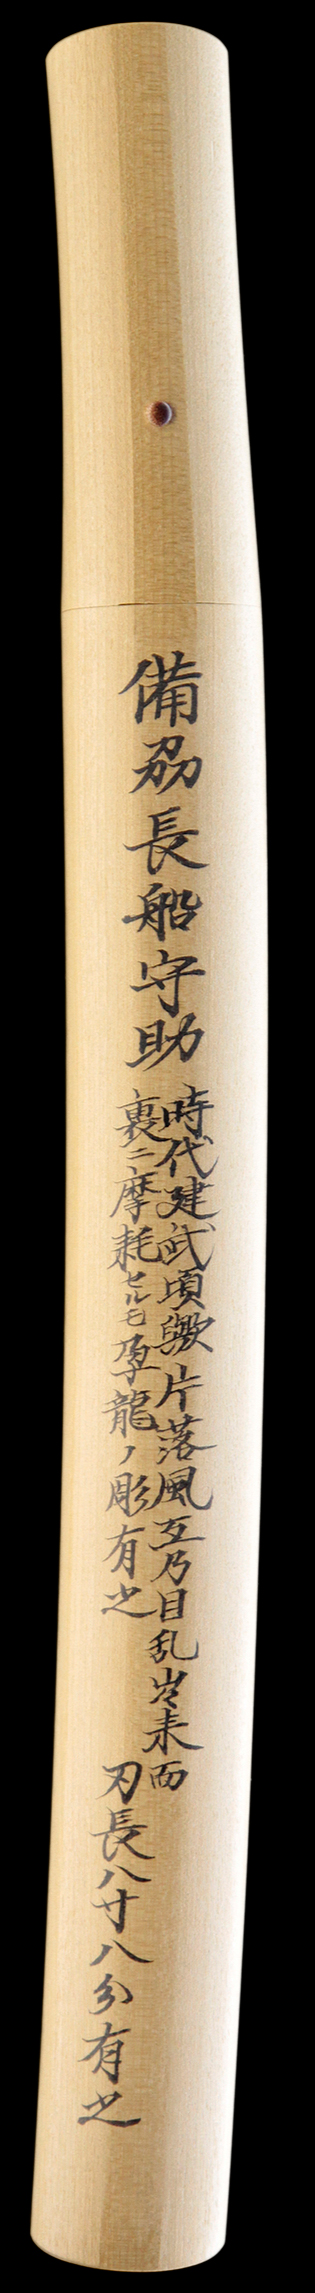 備州長船守助
時代建武頃歟片落風互乃目乱出来而
裏ニ摩耗セルモ孕龍ノ彫有之
刃長八寸八分有之